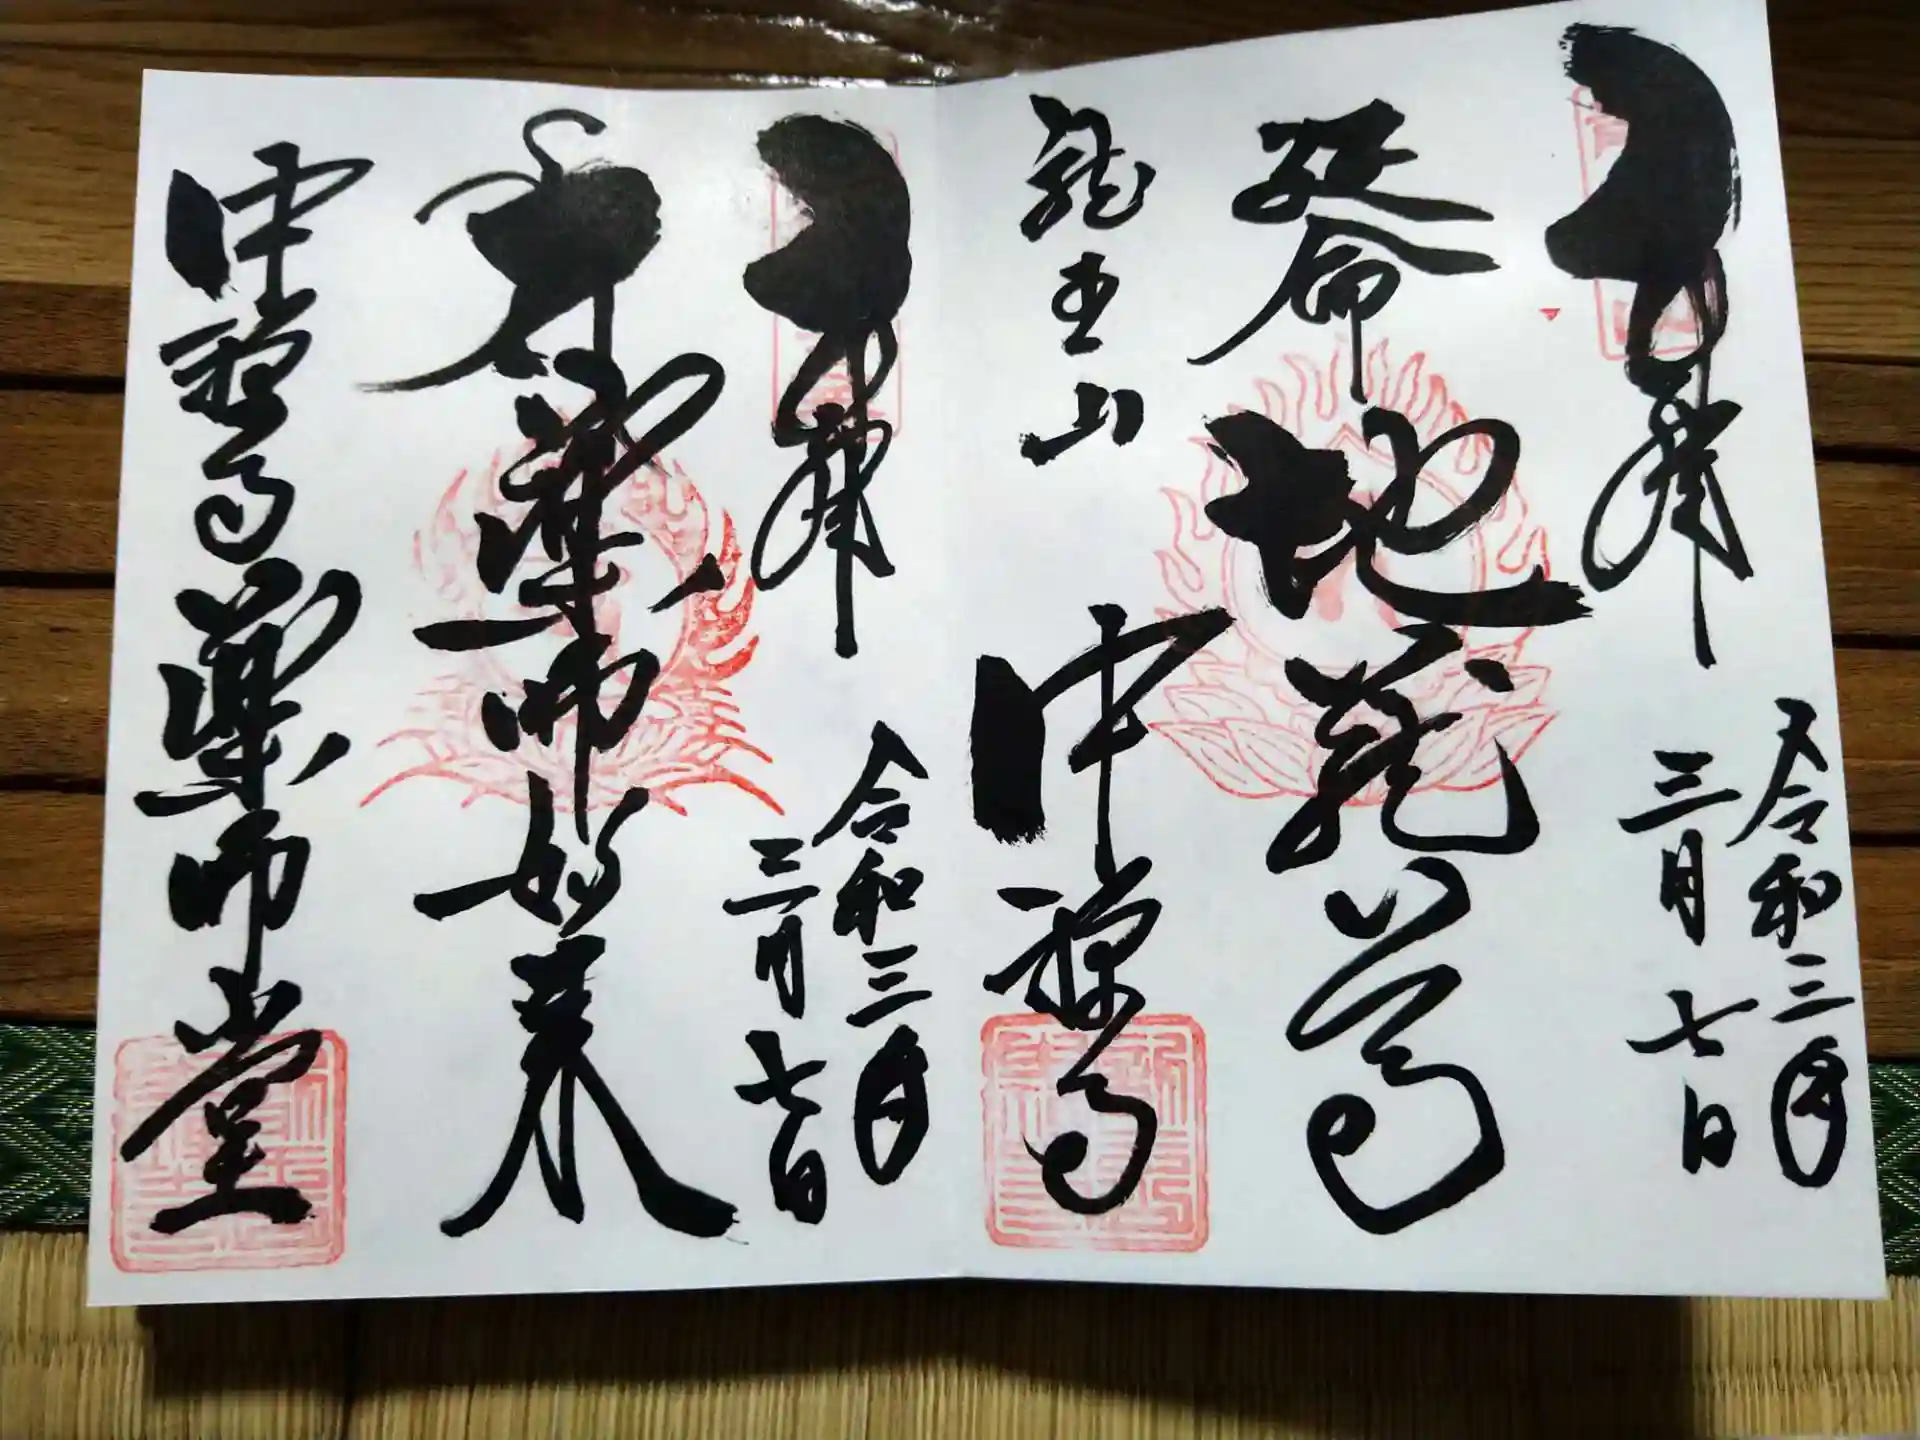 奉拝
令和三年
三月七日
延命
地蔵尊
龍王山
中禅寺
奉拝
令和三年
三月七日
薬師如来
中禅寺薬師堂